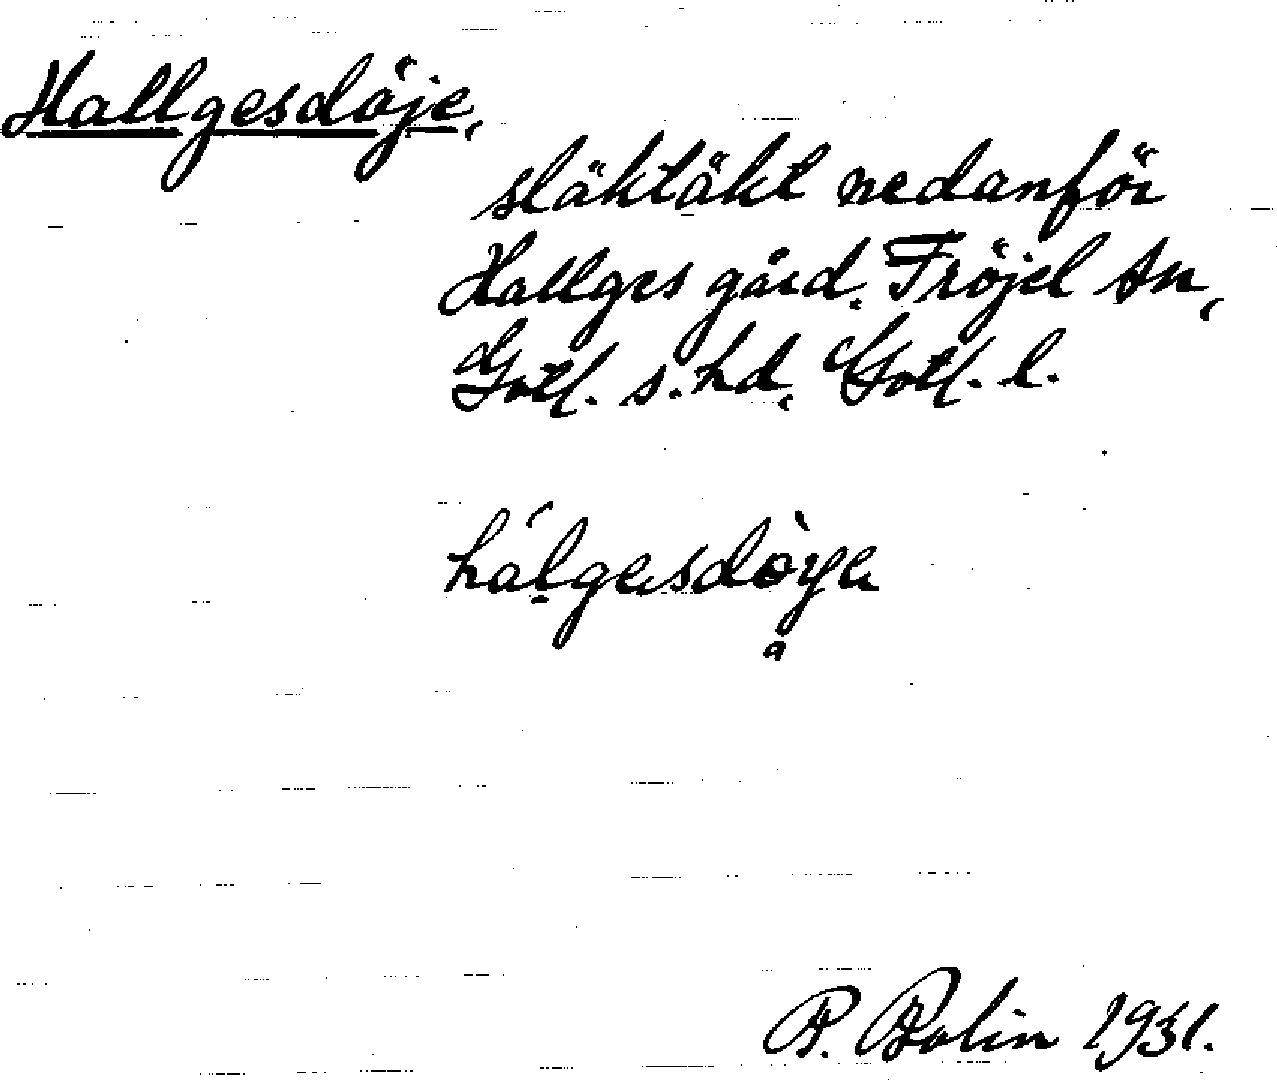 Hallgesdöje,
släktäkt nedanför
Hallges gård, Fröjel sn,
Gotl. s. hd, Gotl. l.
hálgesdòye
a
P. Bolin 1931.